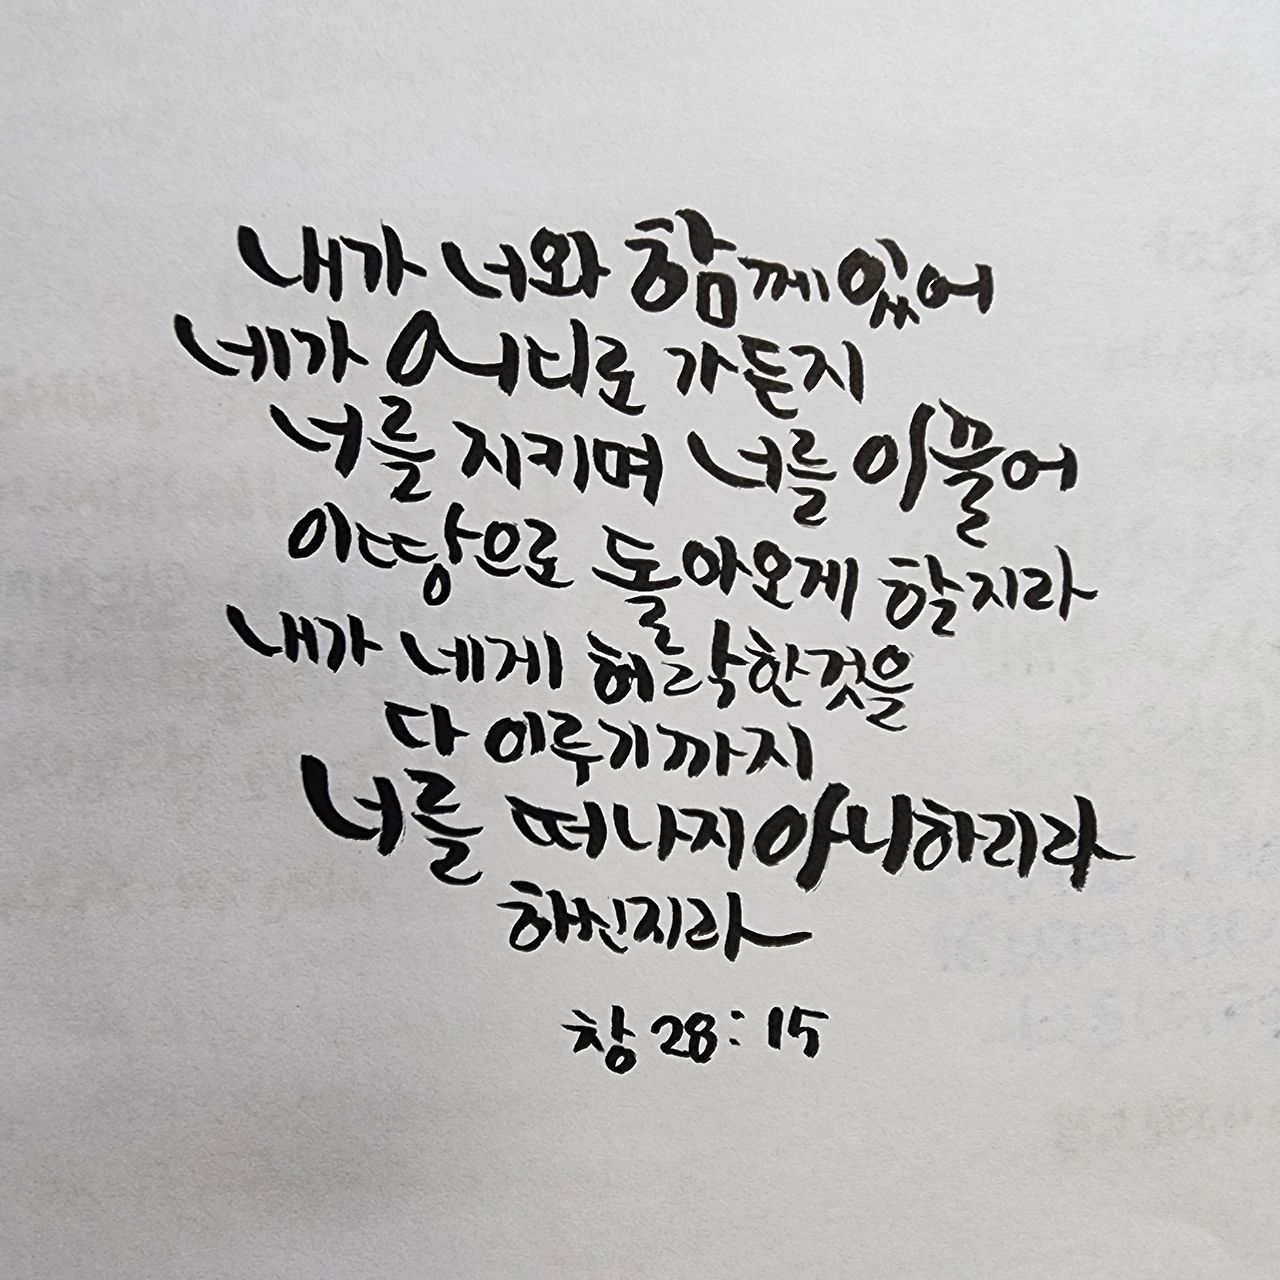 내가 너와 함께 있어
네가 어디로 가든지
너를 지키며 너를 이끌어
이 땅으로 돌아오게 할지라
내가 네게 허락한것을
다 이루기까지
너를 떠나지 아니하리라
하신지라
창 28:15